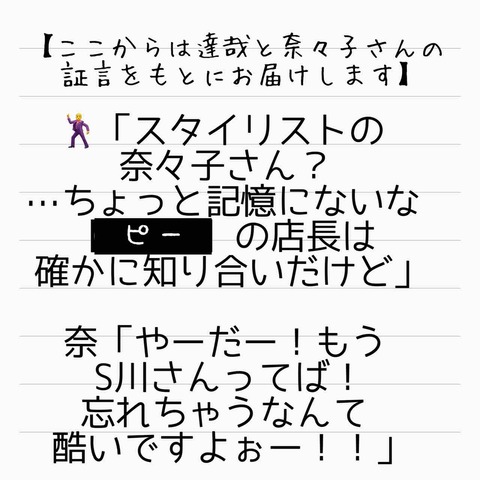 【ここからは達哉と奈々子さんの
証言をもとにお届けします】
🕺「スタイリストの
奈々子さん？
…ちょっと記憶にないな
ピー の店長は
確かに知り合いだけど」
奈「やーだー！もう
S川さんってば！
忘れちゃうなんて
酷いですよぉー！！」